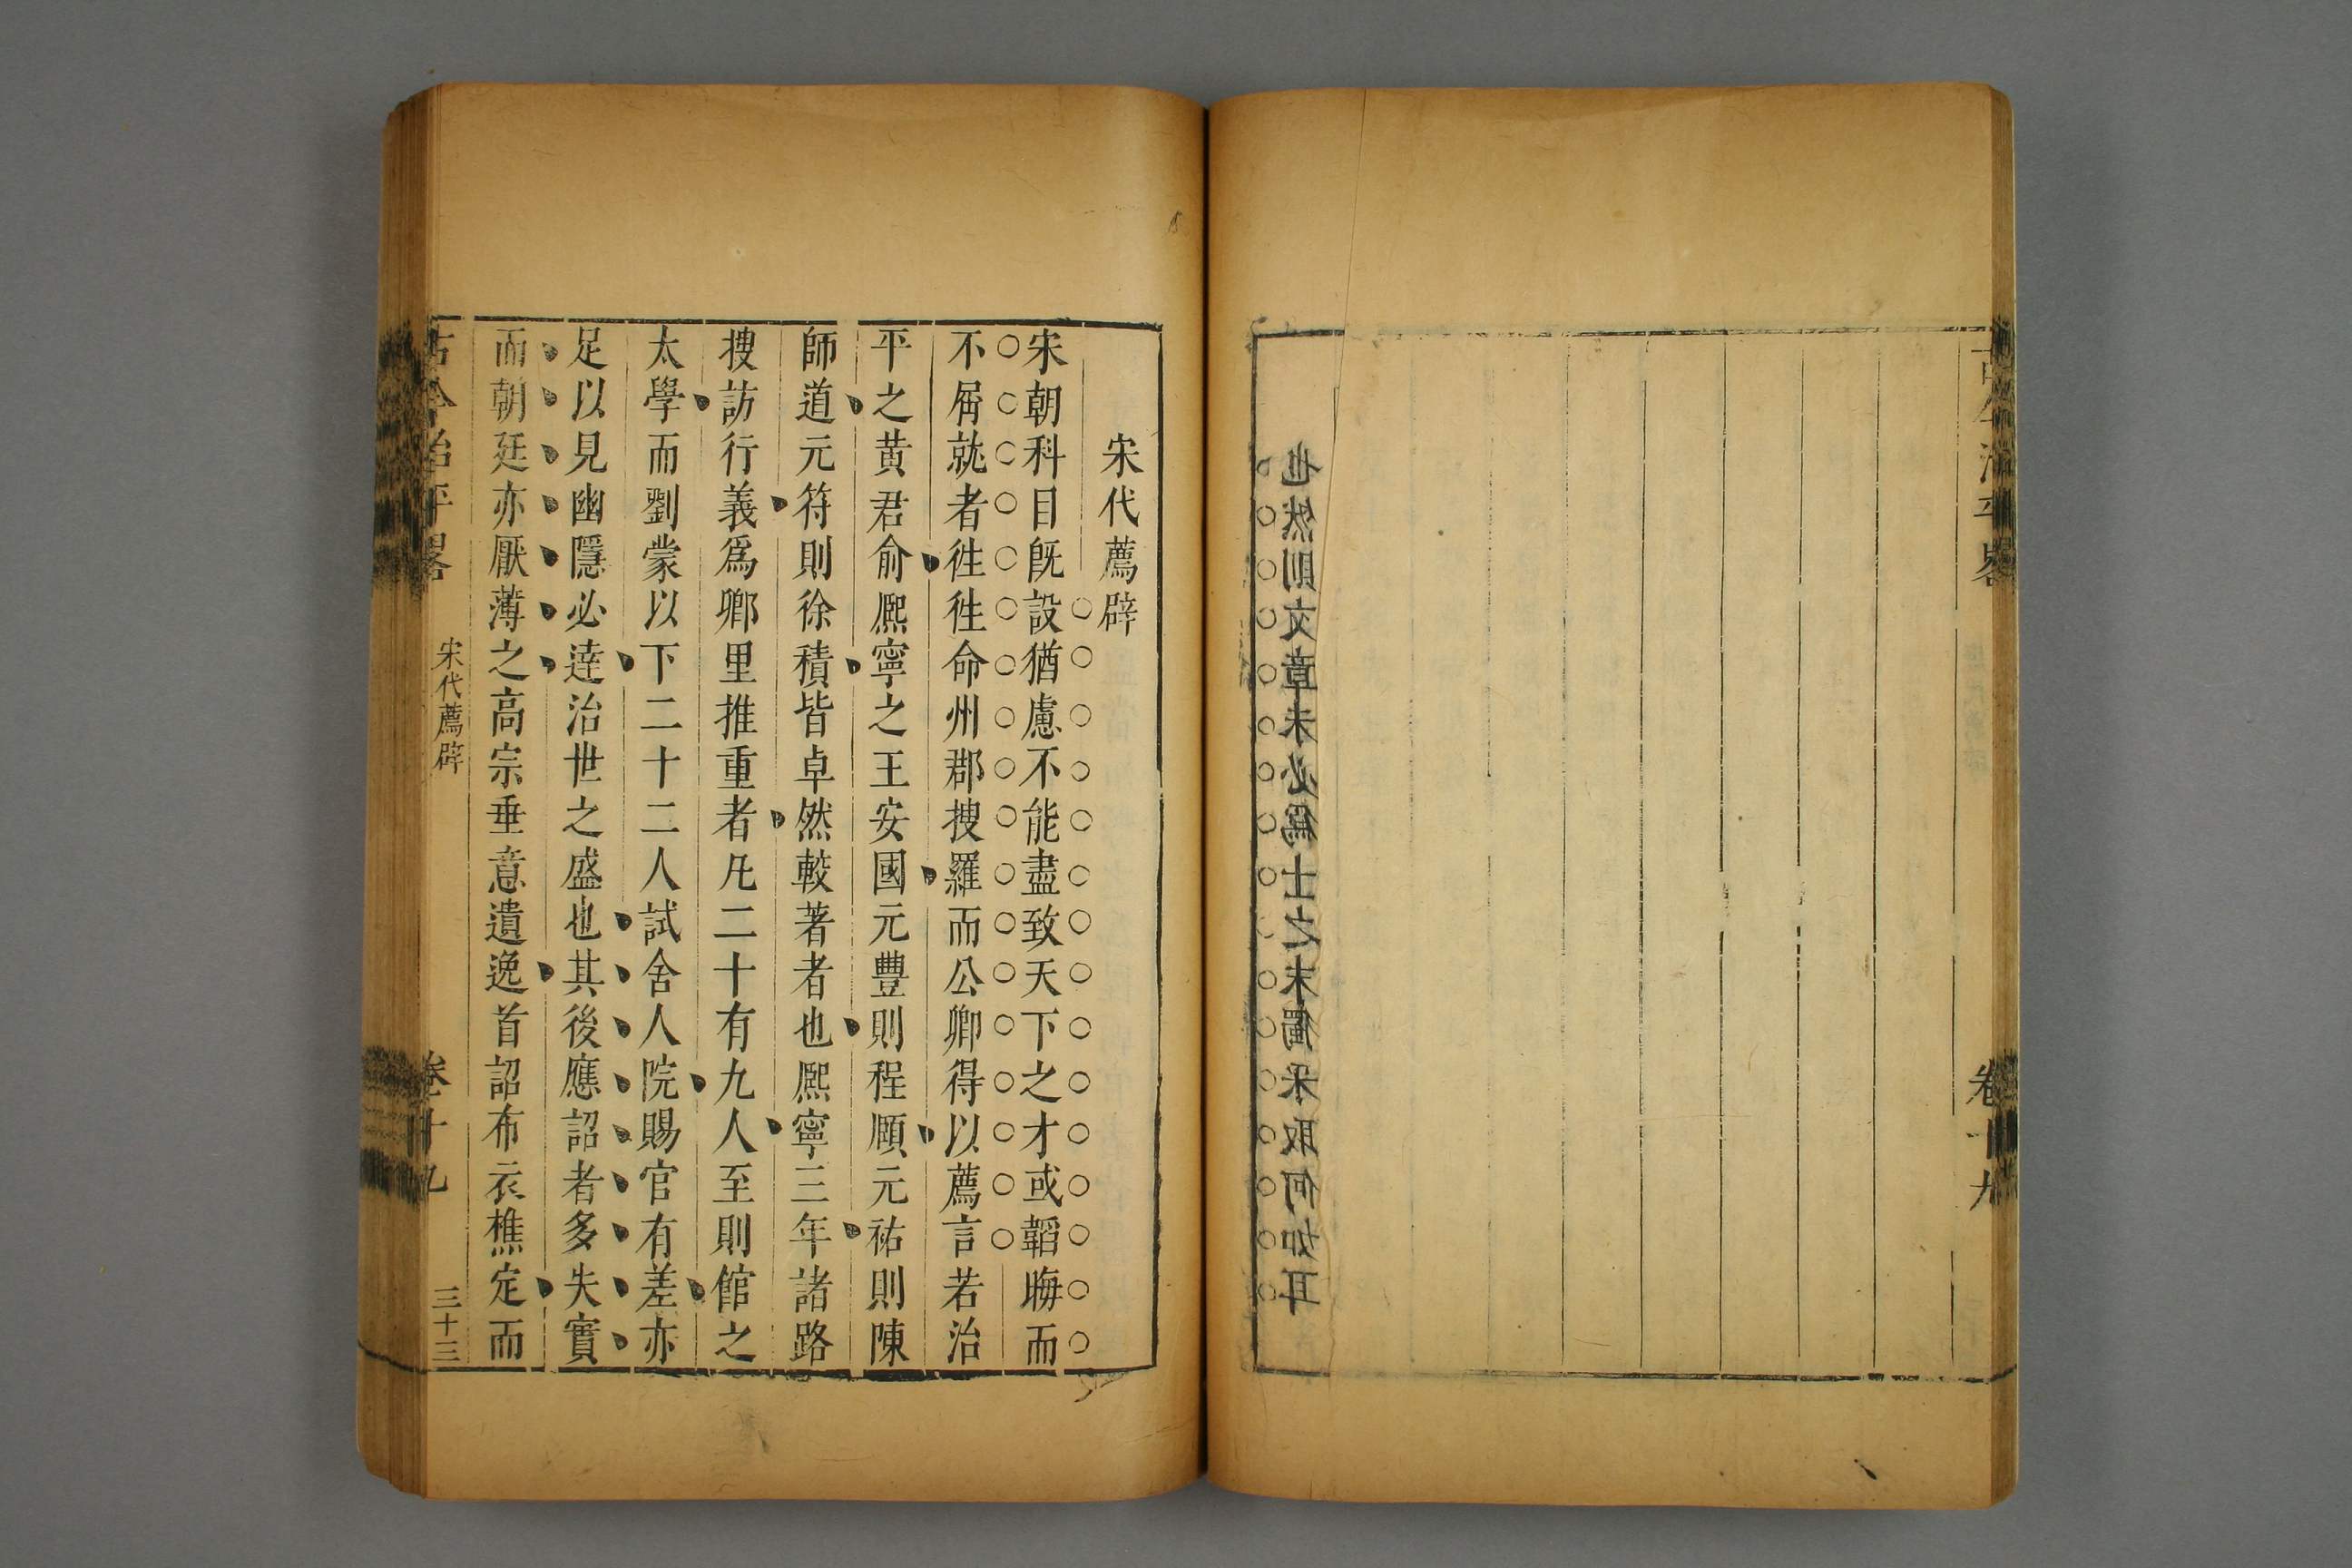 古今治平畧 卷十九
也然則文章未必爲士之末獨采取何如耳
宋代薦辟
宋朝科目旣設猶慮不能盡致天下之才或韜晦而
不屑就者徃徃命州郡搜羅而公卿得以薦言若治
平之黄君俞熈寧之王安國元豐則程頤元祐則陳
師道元符則徐積皆卓然較著者也熈寧三年諸路
搜訪行義爲鄉里推重者凡二十有九人至則館之
太學而劉蒙以下二十二人試舍人院賜官有差亦
足以見幽隱必逹治世之盛也其後應詔者多失實
而朝廷亦厭薄之高宗垂意遺逸首詔布衣樵定而
古今治平畧 宋代薦辟 卷十九 三十三